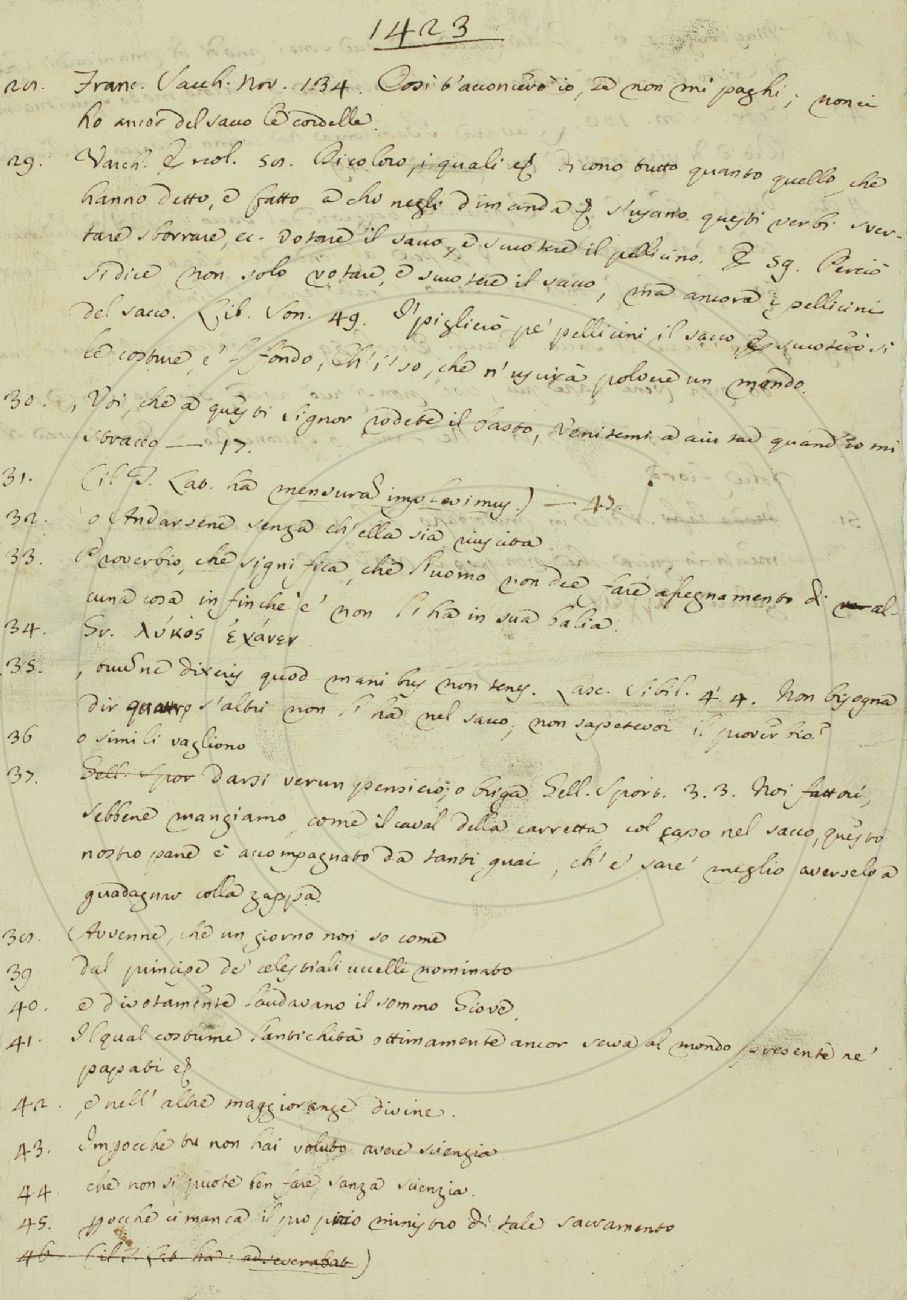 1423
28. Franc. Sacch. Nov. 134. Così t'acconcerò io, se non mi paghi; non ci
ho ancor del sacco le cordelle.
29. Varch. Ercol. 58. Dicoloro, i quali dicono tutto quanto quello che
hanno detto, e fatto a chi negli dimanda si usano questi verbi sver-
tare sborrare, ec. votare il sacco, e scuotere il pellicino. E 59. Perciò
si dice non solo votare, e scuotere il sacco, ma ancora i pellicini
del sacco. Lib. Son. 49. I' piglierò pe' pellicini il sacco, E scuoterò si
le costure, e 'l fondo, Ch' i' so, che n'uscirà polvere un mondo.
30. , Voi, che a questi signor rodete il basto, Venitemi a aiutar quand'io mi
stracco — 17.
31. (il T. Lat. ha mensurã implevimus) — 47.
32. o Andarsene senza ch'ella sia riuscita
33. Proverbio, che significa, che l'uomo non dee fare assegnamento di al-
cuna cosa infinche e' non l'ha in sua balia.
34. Gr. λύκος ἔχανεν
35. , ouũne dixeris quod manibus non tenes. Lasc. Sibil. 4. 4. Non bisogna
dir quattro s'altri non l'ha nel sacco, non sapetevoi il proverbio?
36 o simili vagliono
37. Gell. Spor darsi verun pensiero, o briga Gell. Sport. 3. 3. Noi fattori,
sebbene mangiamo, come il caval della carretta col capo nel sacco, questo
nostro pane è accompagnato da tanti guai, ch' e' sare' meglio averselo a
guadagnar colla zappa.
38. (Avvenne, che un giorno non so come
39 dal principe de' celestiali uccelli nominato
40. e divotamente laudavano il sommo Giove.
41. Il qual costume l'antichità ottimamente ancor serva al mondo presente ne'
papati
42. , e nell' altre maggioranze divine.
43. Imperocche tu non hai voluto avere scienzia
44 che non si puote ben fare sanza scienzia.
45. perocche ci manca il proprio ministro di tale sacramento
46 (il T. Lat. ha: adseverabat)